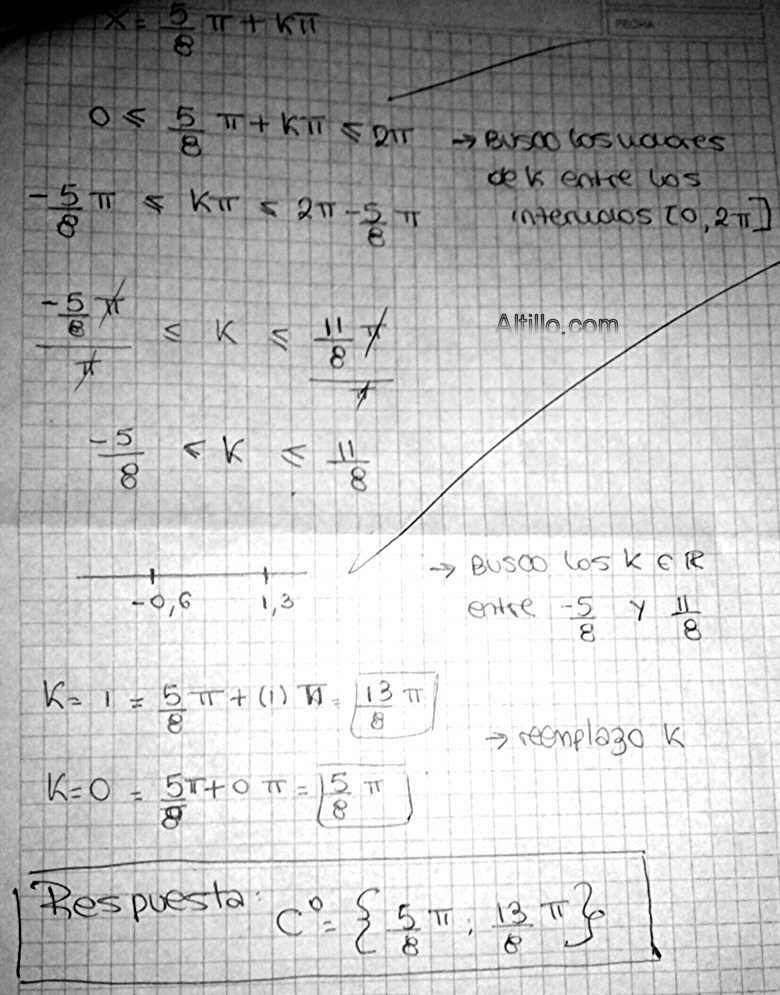 FECHA
X = 5/8 π + Kπ
0 ≤ 5/8 π + Kπ ≤ 2π → BUSCO LOS VALORES
DE K ENTRE LOS
INTERVALOS [0, 2π]
-5/8 π ≤ Kπ ≤ 2π - 5/8 π
(-5/8 π)/π ≤ K ≤ (11/8 π)/π
Altillo.com
-5/8 ≤ K ≤ 11/8
→ BUSCO LOS K ∈ R
-0,6 1,3
entre -5/8 y 11/8
K = 1 = 5/8 π + (1) π = 13/8 π
→ reemplazo K
K = 0 = 5/8 π + 0 π = 5/8 π
Respuesta: C⁰ = { 5/8 π ; 13/8 π }